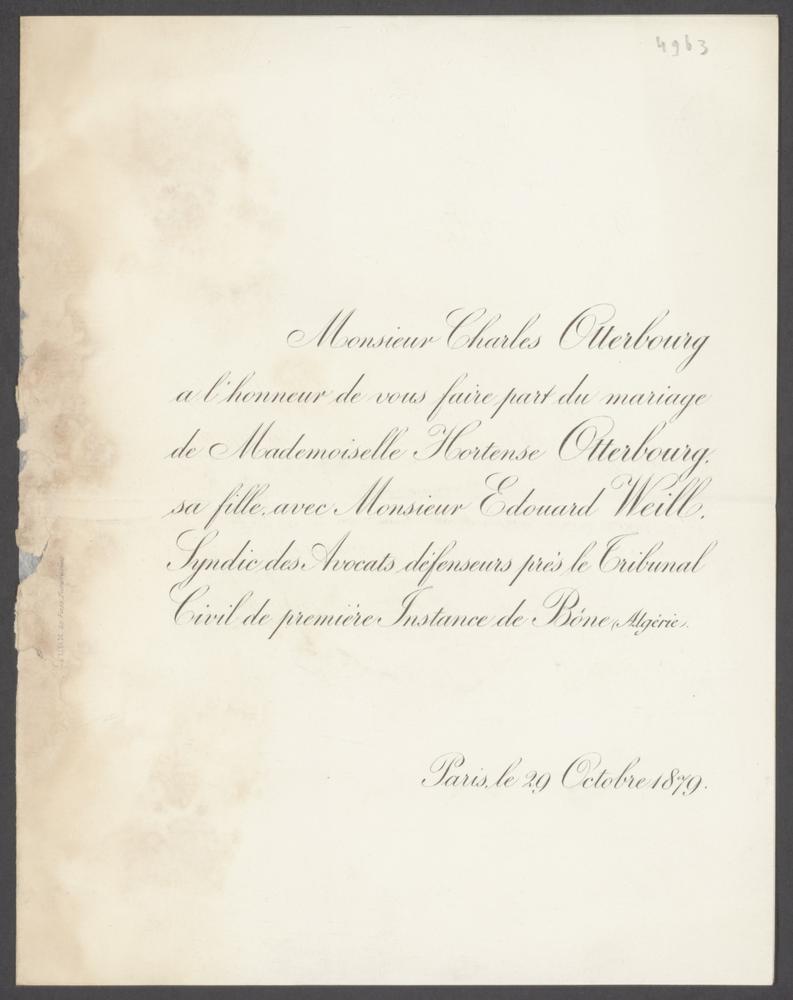 4963
Monsieur Charles Otterbourg
a l'honneur de vous faire part du mariage
de Mademoiselle Hortense Otterbourg,
sa fille, avec Monsieur Edouard Weill,
Syndic des Avocats défenseurs près le Tribunal
Civil de première Instance de Bône (Algérie).
Paris, le 29 Octobre 1879.